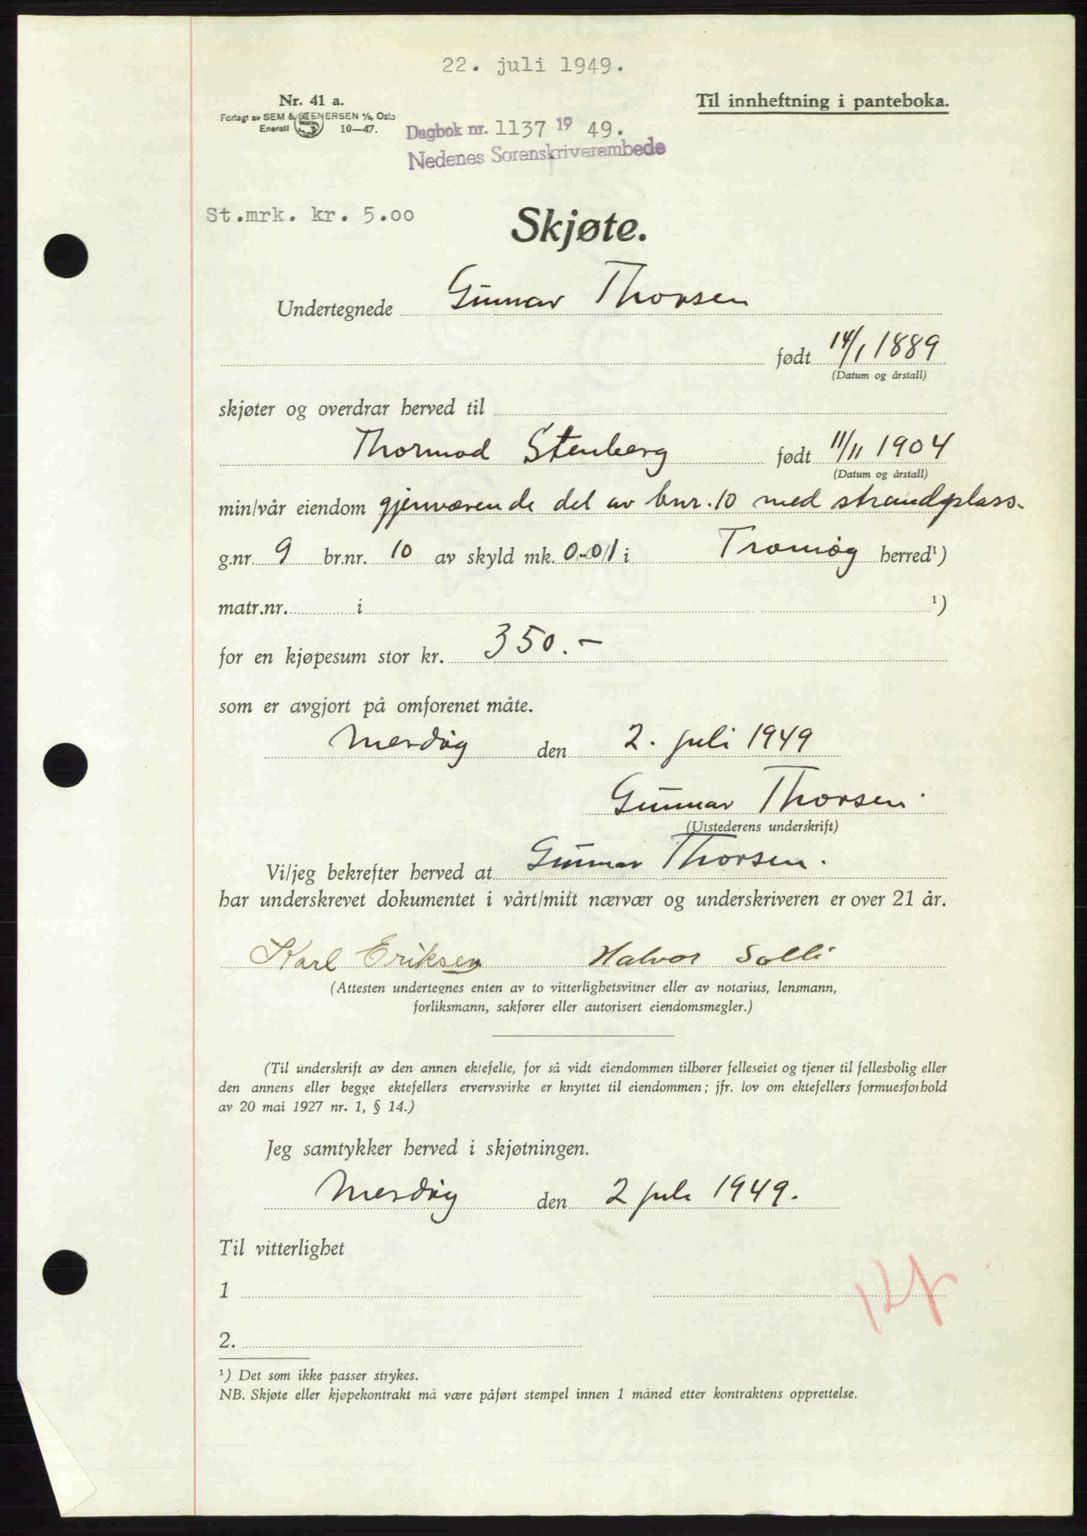 22. juli 1949.
Nr. 41 a.
Til innheftning i panteboka.
Forlagt av SEM & STENERSEN A/S, Oslo
Enerett 10—47.
Dagbok nr. 1137 19 49.
Nedenes Sorenskriverembede
St.mrk. kr. 5.00
Skjøte.
Undertegnede Gunnar Thorsen
født 14/1 1889
(Datum og årstall)
skjøter og overdrar herved til
Thormod Stenberg født 11/11 1904
(Datum og årstall)
min/vår eiendom gjenværende del av bnr. 10 med strandplass.
g.nr. 9 br.nr. 10 av skyld mk. 0.01 i Tromøy herred¹)
matr.nr. i ¹)
for en kjøpesum stor kr. 350.-
som er avgjort på omforenet måte.
Merdøy den 2. juli 1949
Gunnar Thorsen.
(Utstederens underskrift)
Vi/jeg bekrefter herved at Gunnar Thorsen.
har underskrevet dokumentet i vårt/mitt nærvær og underskriveren er over 21 år.
Karl Eriksen Halvor Solli
(Attesten undertegnes enten av to vitterlighetsvitner eller av notarius, lensmann,
forliksmann, sakfører eller autorisert eiendomsmegler.)
(Til underskrift av den annen ektefelle, for så vidt eiendommen tilhører felleseiet og tjener til fellesbolig eller
den annens eller begge ektefellers ervervsvirke er knyttet til eiendommen; jfr. lov om ektefellers formuesforhold
av 20 mai 1927 nr. 1, § 14.)
Jeg samtykker herved i skjøtningen.
Merdøy den 2 juli 1949.
Til vitterlighet
1
2.
¹) Det som ikke passer strykes.
NB. Skjøte eller kjøpekontrakt må være påført stempel innen 1 måned etter kontraktens opprettelse.